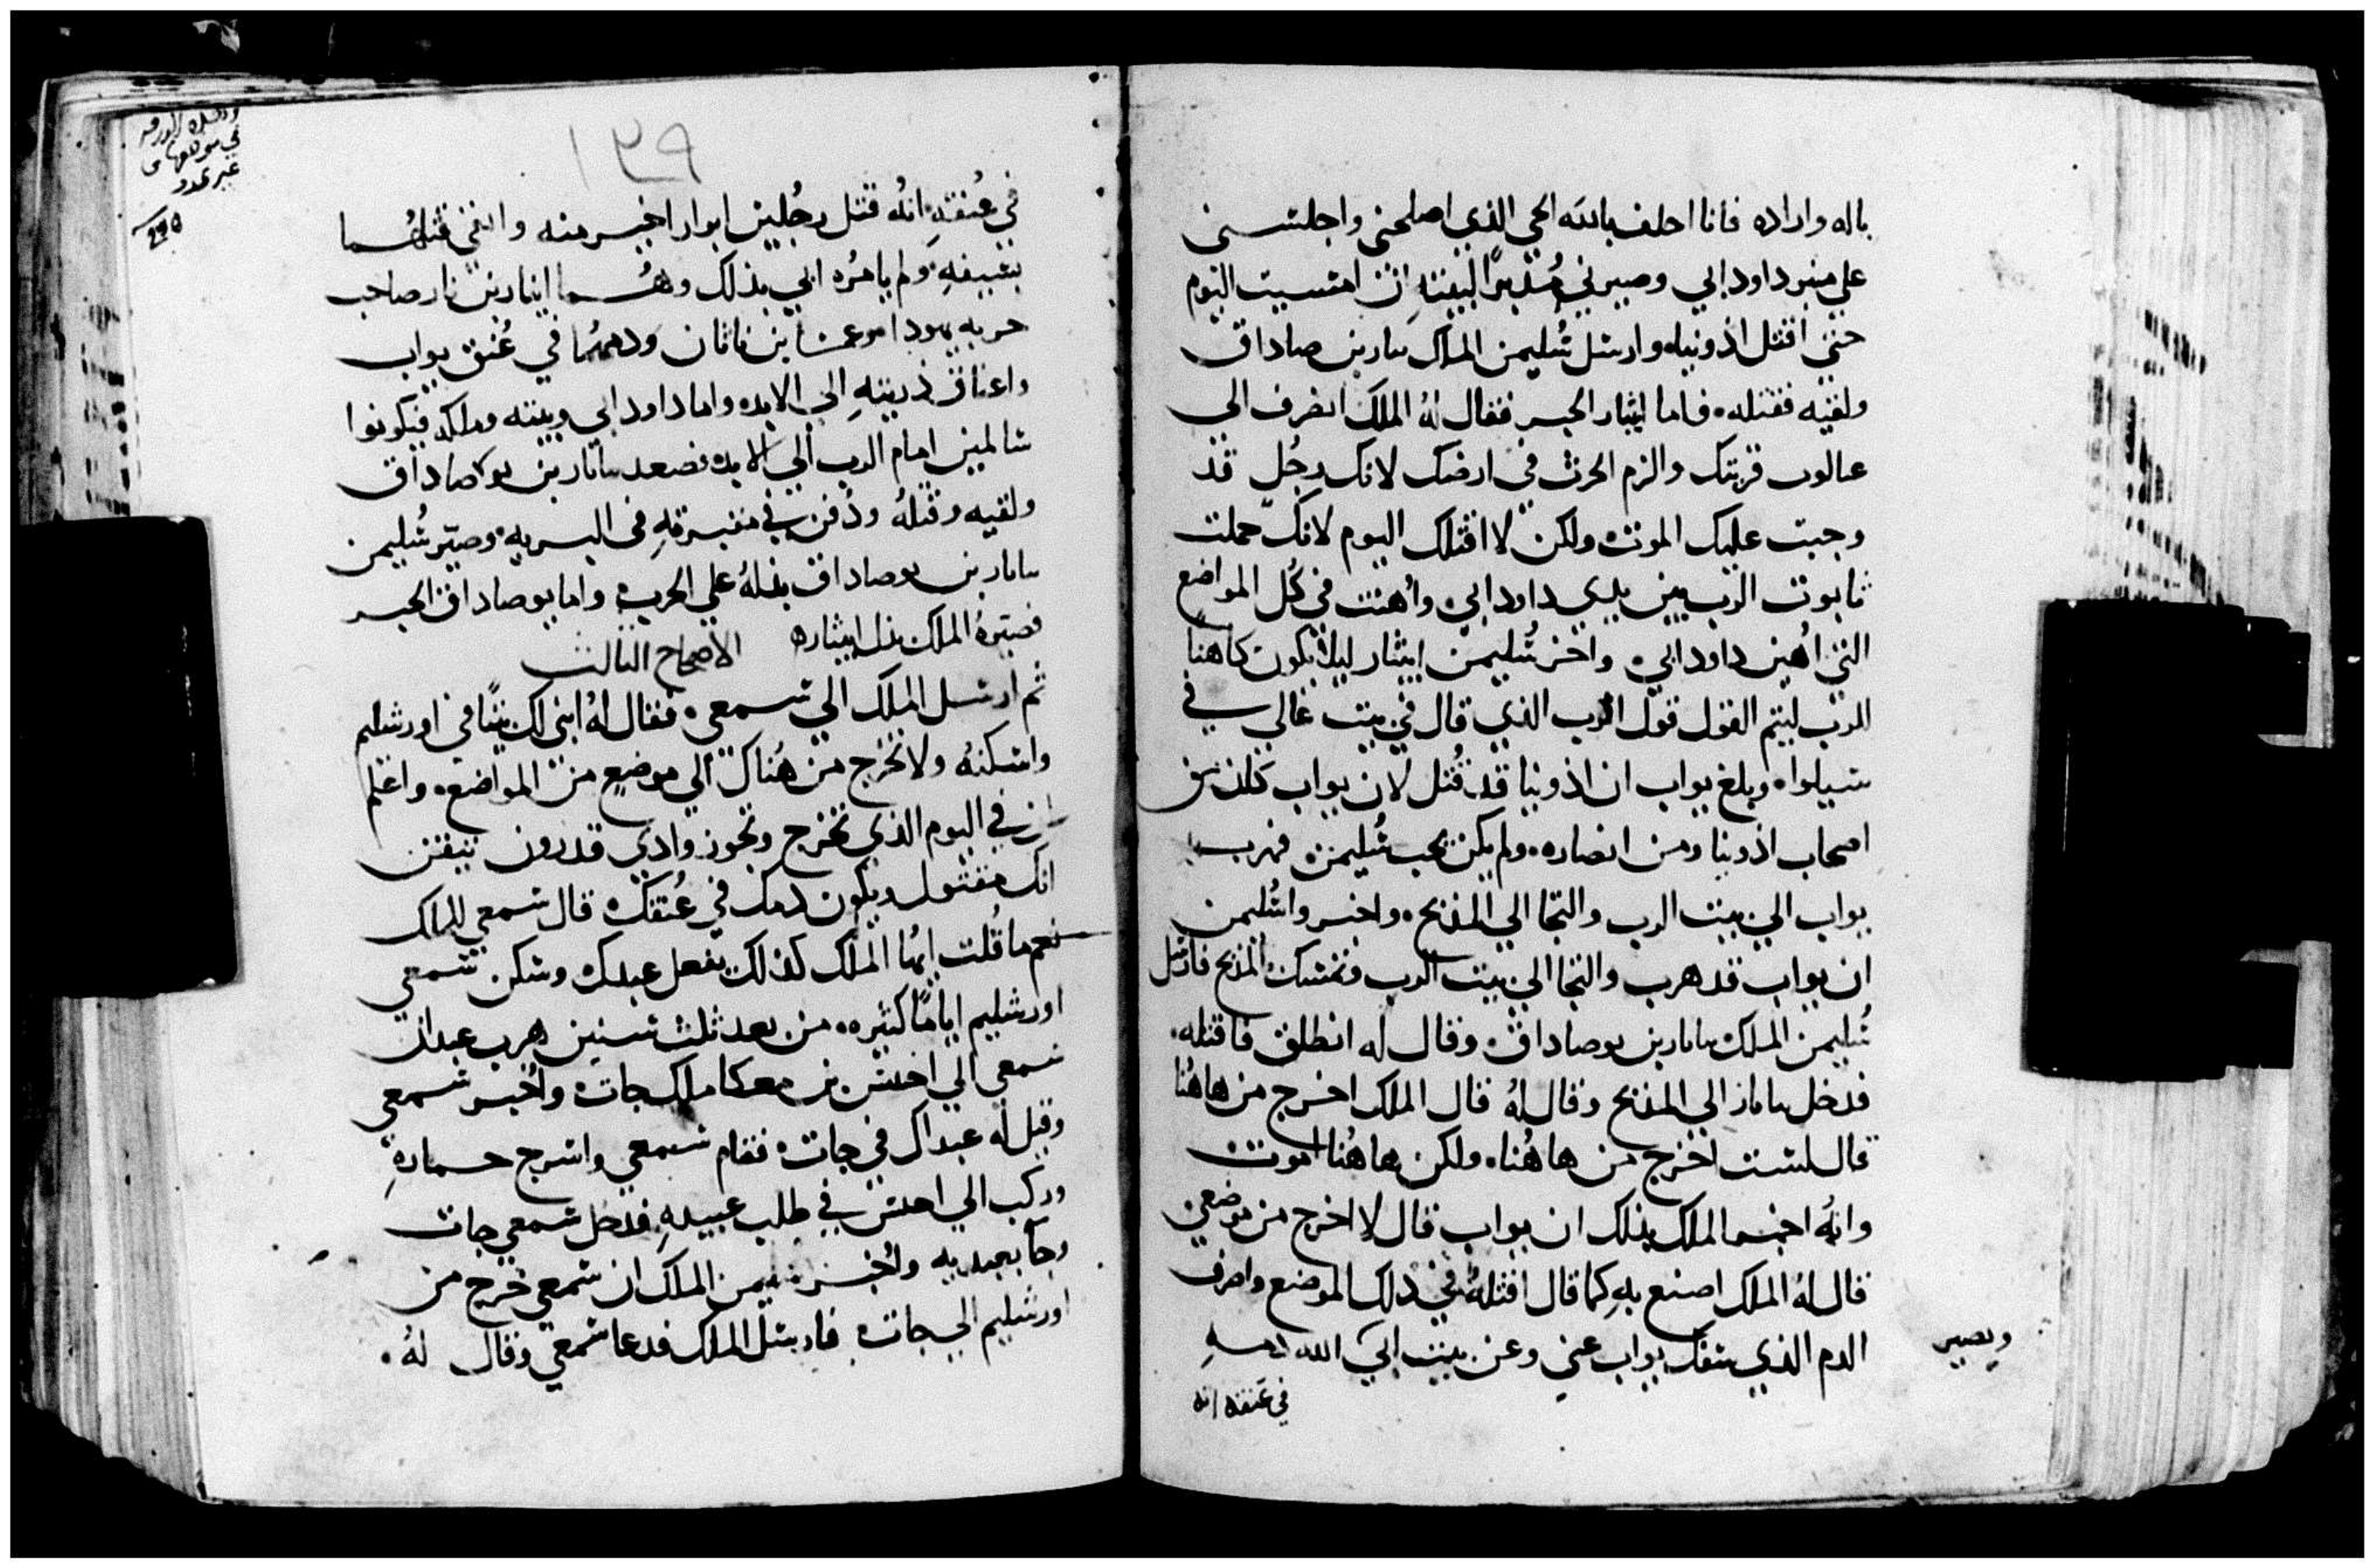 باله واراده فانا احلف بالله الحي الذي اصلحني واجلسني
علي منبر داود ابي وصيرني مُدبرًا لبيته ان امسيت اليوم
حتي اقتل اذونياه وارسل سُليمن الملك بن صاداق
ولقيه فقتله. فاما ابيثار الحبر فقال لهُ الملك انصرف الي
قريتك والزم الحرث في ارضك لانك رجُل قد
وجبت عليك الموت ولكن لا اقتلك اليوم لانك حملت
تابوت الرب بين يدي داود ابي واُهنت في كُل المواضع
التي اُهين داود ابي واخر سُليمن ابيثار ليلا يكون كاهنًا
للرب ليتم القول قول الرب الذي قال في بيت عالي في
سيلوا. وبلغ يواب ان اذونيا قد قُتل لان يواب كان من
اصحاب اذونيا ومن انصاره. ولم يكن يحب سُليمن فهرب
يواب الي بيت الرب والتجا الي المذبح. واخبروا سُليمن
ان يواب قد هرب والتجا الي بيت الرب وتمسك المذبح فارسل
سُليمن الملك بن يوصاداق وقال له انطلق فاقتله.
فدخل الي المذبح وقال لهُ قال الملك اخرج من هاهُنا
قال لست اخرج من هاهُنا. ولكن هاهُنا اموت
وانهُ اخبر الملك بذلك ان يواب قال لا اخرج من موضعي
قال لهُ الملك اصنع بهِ كما قال اقتلهُ في ذلك الموضع واصرف
الدم الذي سفك يواب عني وعن بيت ابي الله دمه
ويصير
في عنقه انه
١٣٩
في موضعها
غير عدد
290
في عُنقهِ انهُ قتل رجُلين ابرار اخير منه وانني قتلهُما
بسيفهِ ولم يامُره ابي بذلك وهُما ابنار بن نار صاحب
حربه يهودا بن ودمهُما في عُنق يواب
واعناق ذريتهِ الي الابد واما داود ابي وبيته وملكه فيكونوا
سالمين امام الرب الي الابد فصعد بن يوصاداق
ولقيه وقتلهُ ودُفن في مقبرتهِ في البريه وصيّر سُليمن
بن يوصاداق بدلهُ علي الحرب واما يوصاداق الحبر
فصيّرهُ الملك بدل ابيثاره الاصحاح الثالث
ثم ارسل الملك الي سمعي. فقال لهُ ابني لك بيتًا في اورشليم
واسكنهُ ولا تخرج من هُناك الي موضع من المواضع. واعلم
ان في اليوم الذي تخرج وتجوز وادي قدرون تيقن
انك مقتول ويكون دمك في عُنقك قال سمعي للملك
نعم ما قُلت ايها الملك كذلك يفعل عبدك وسكن سمعي
اورشليم ايامًا كثيره. من بعد ثلث سنين هرب عبدان
سمعي الي اخيش بن معكا ملك جات واُخبر سمعي
وقيل له عبداك في جات فقام سمعي واسرج حمارهِ
وركب الي اخيش في طلب عبيدهِ فدخل سمعي جات
وجآ بعبديه واُخبر سليمن الملك ان سمعي خرج من
اورشليم الي جات. فارسل الملك فدعا سمعي وقال لهُ.